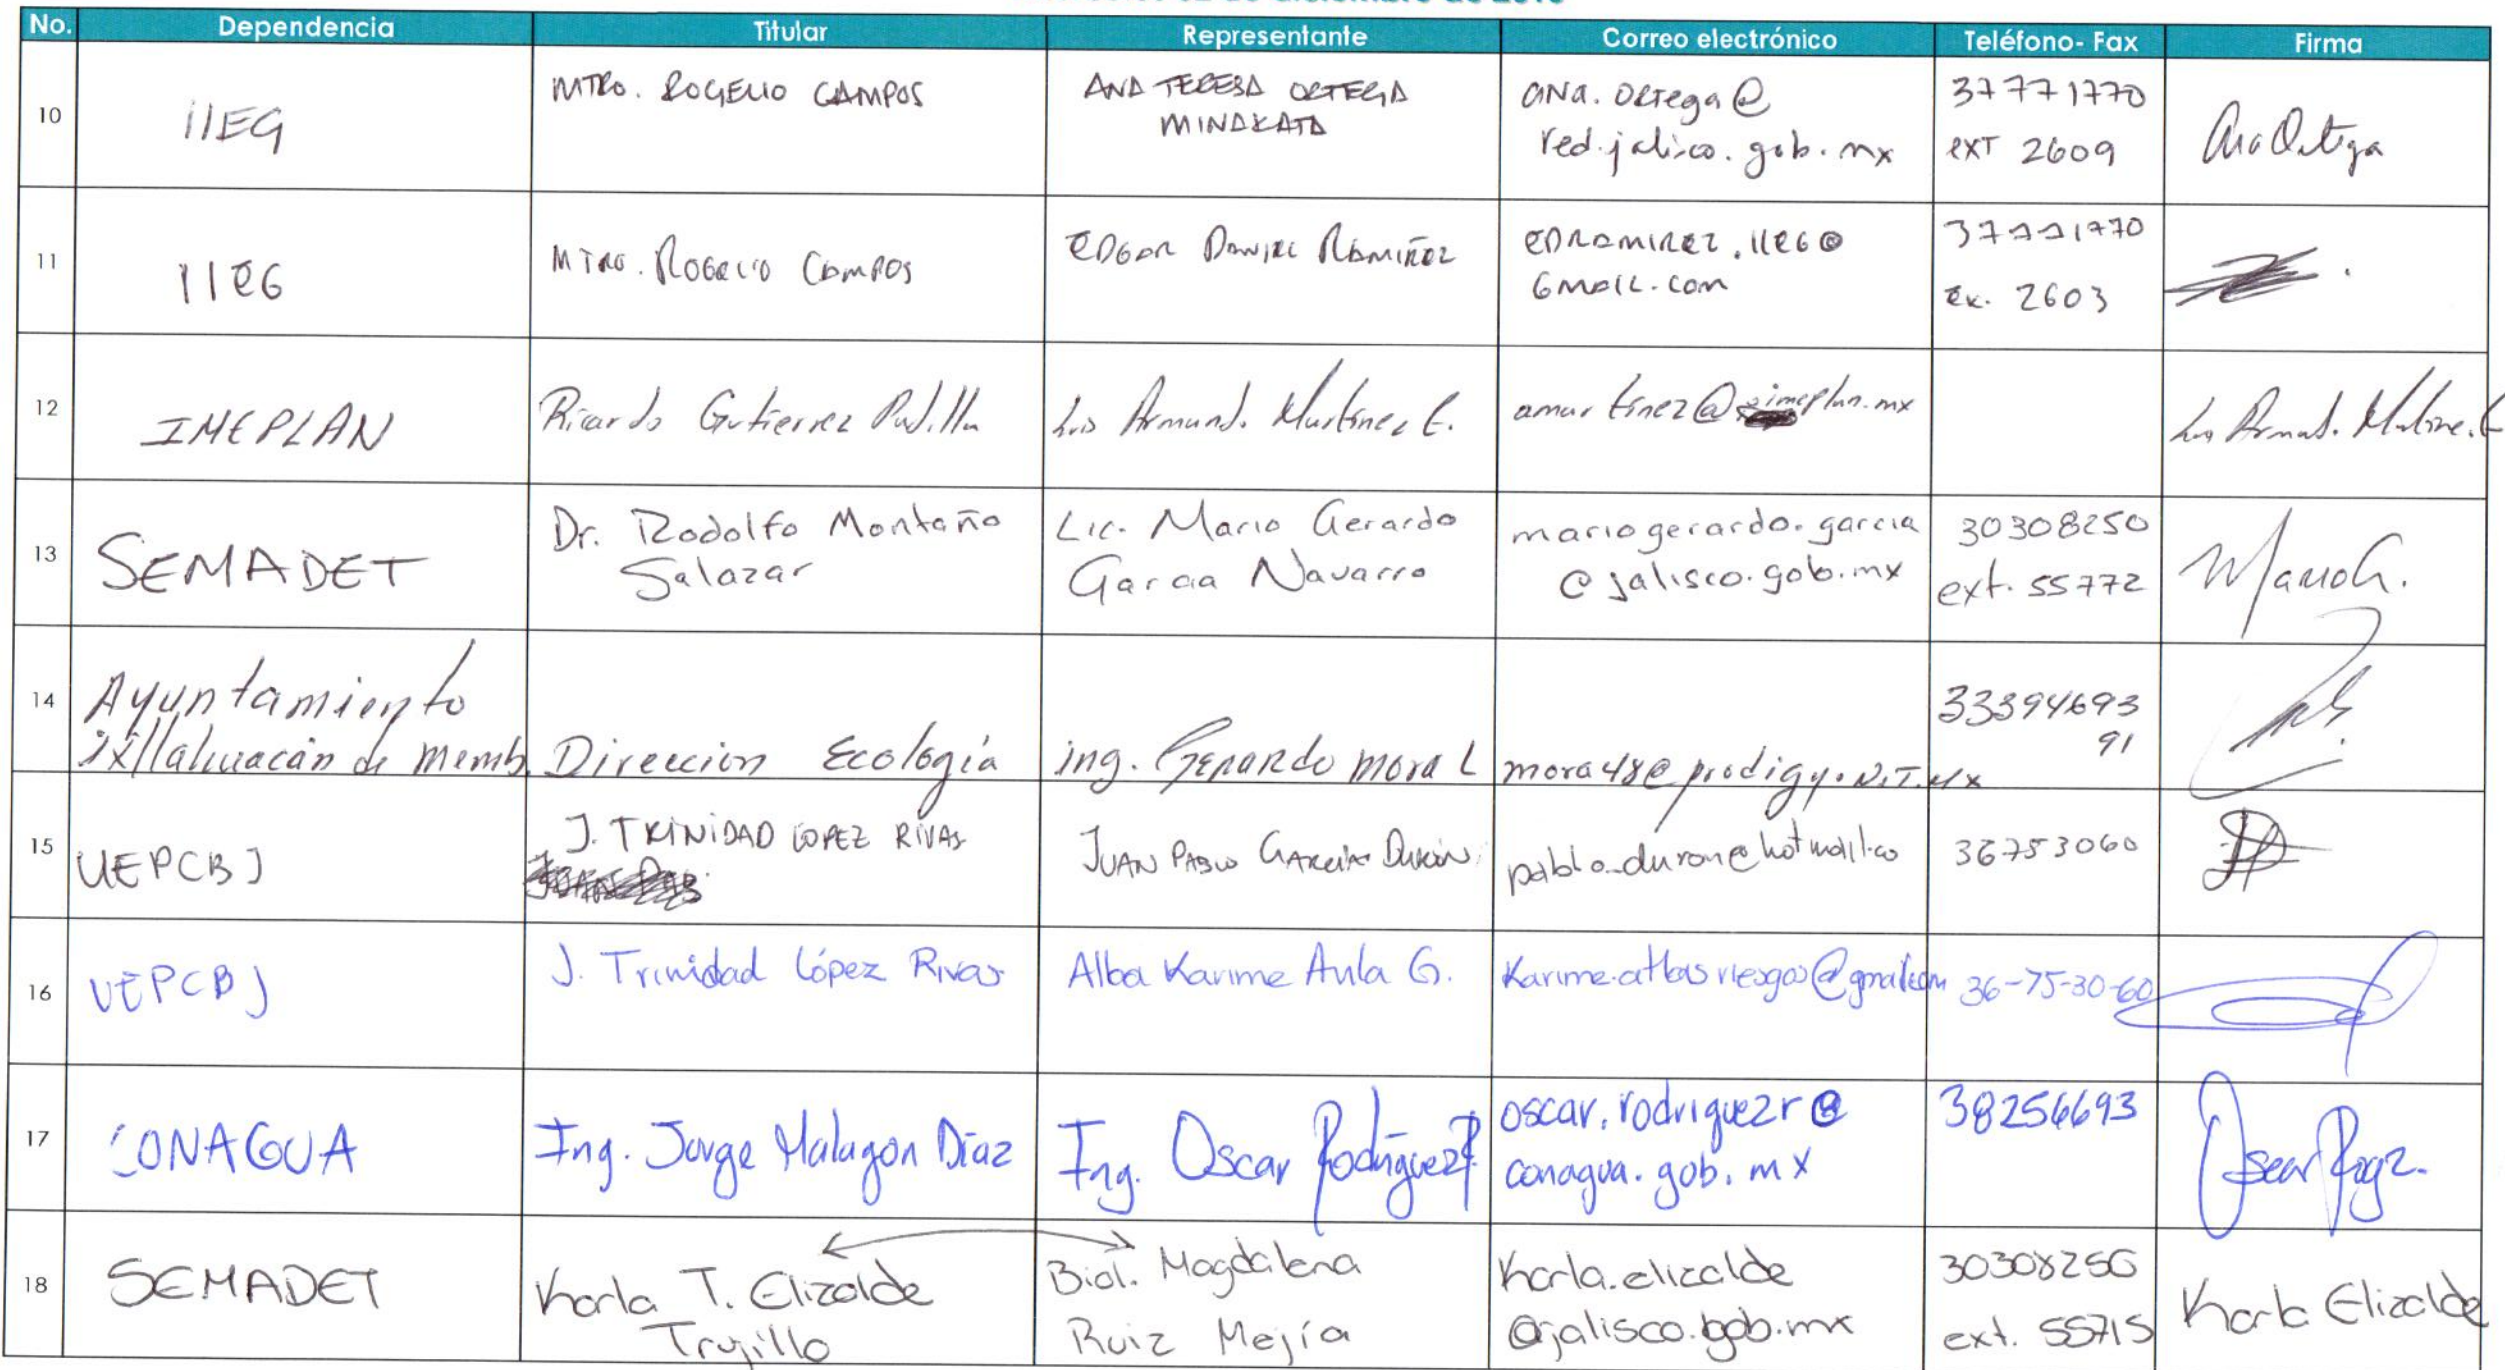 No. Dependencia Titular Representante Correo electrónico Teléfono- Fax Firma
10 IIEG MTRO. ROGELIO CAMPOS ANA TERESA ORTEGA MINAKATA ana.ortega@ red.jalisco.gob.mx 37771770 ext 2609 Ana Ortega
11 IIEG MTRO. ROGELIO CAMPOS EDGAR DANIEL RAMIREZ EDRAMIREZ.IIEG@ GMAIL.COM 37771770 Ex. 2603
12 IMEPLAN Ricardo Gutierrez Padilla Luis Armando Martinez E. amartinez@imeplan.mx Luis Armando Martinez E
13 SEMADET Dr. Rodolfo Montaño Salazar Lic. Mario Gerardo Garcia Navarro mariogerardo.garcia @jalisco.gob.mx 30308250 ext. 55772 Mario G.
14 Ayuntamiento Ixtlahuacán de Memb. Direccion Ecología ing. Gerardo Mora L mora48@prodigy.NET.MX 33394693 91
15 UEPCBJ J. TRINIDAD LOPEZ RIVAS JUAN PABLO GARCIA DURÓN pablo_duron@hotmail.co 36753060
16 UEPCBJ J. Trinidad López Rivas Alba Karime Avila G. Karime.atlasriesgos@gmail.com 36-75-30-60
17 CONAGUA Ing. Jorge Malagon Díaz Ing. Oscar Rodríguez R. oscar.rodriguezr@ conagua.gob.mx 38256693 Oscar Rogz.
18 SEMADET Karla T. Elizalde Trujillo Biol. Magdalena Ruiz Mejía Karla.elizalde @jalisco.gob.mx 30308250 ext. 55715 Karla Elizalde